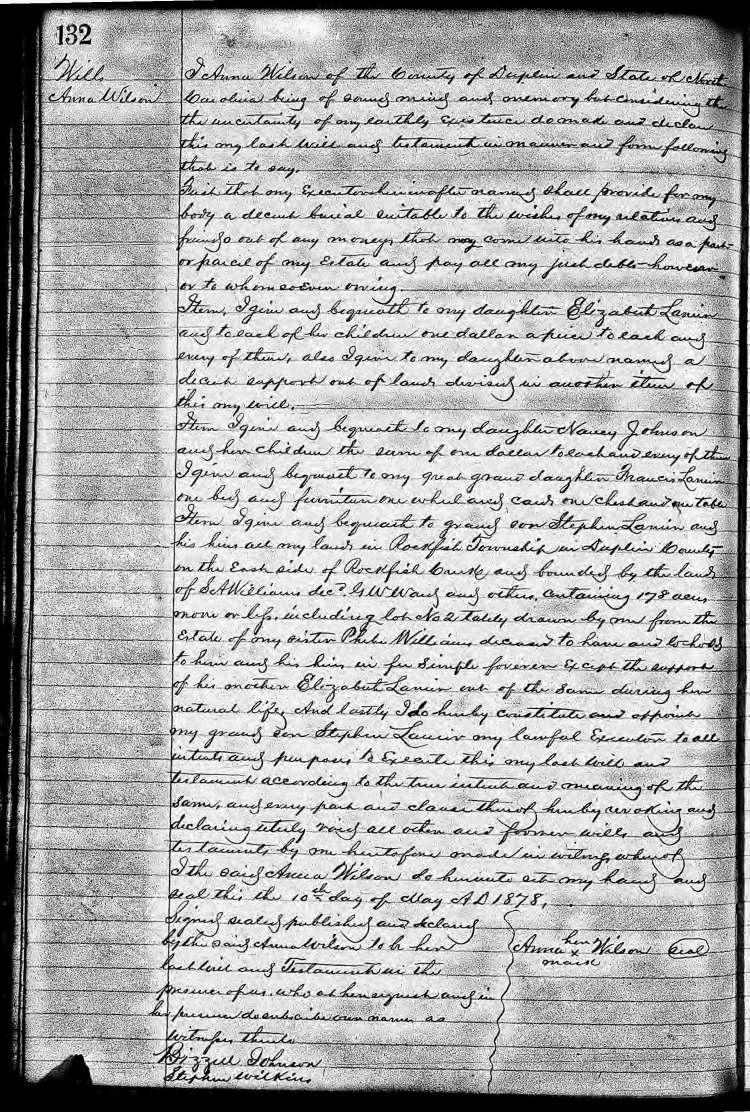 132
Wills
Anna Wilson
I Anna Wilson of the County of Duplin and State of North
Carolina being of sound mind and memory but considering the
the uncertainty of my earthly existence do make and declare
this my last will and testament in manner and form following
that is to say,
First that my Executor hereinafter named shall provide for my
body a decent burial suitable to the wishes of my relatives and
friends out of any moneys that may come into his hands as a part
or parcel of my Estate and pay all my just debts however
or to whomsoever owing.
Item, I give and bequeath to my daughter Elizabeth Lanier
and to each of her children one dollar apiece to each and
every of them, also I give to my daughter above named a
decent support out of lands devised in another item of
this my will.
Item I give and bequeath to my daughter Nancy Johnson
and her children the sum of one dollar to each and every of them
I give and bequeath to my great grand daughter Francis Lanier
one bed and furniture one wheel and cards one chest and one table
Item I give and bequeath to grand son Stephen Lanier and
his heirs all my lands in Rockfish Township in Duplin County
on the East side of Rockfish Creek and bounded by the lands
of S A Williams decd. G W Ward and others, containing 178 acres
more or less, including lot No 2 lately drawn by me from the
Estate of my sister Phebe Williams deceased to have and to hold
to him and his heirs in fee simple forever Except the support
of his mother Elizabeth Lanier out of the same during her
natural life, And lastly I do hereby constitute and appoint
my grand son Stephen Lanier my lawful Executor to all
intents and purposes to Execute this my last will and
testament according to the true intent and meaning of the
same, and every part and clause thereof hereby revoking and
declaring utterly void all other and former wills and
testaments by me heretofore made in witness whereof
I the said Anna Wilson do hereunto set my hand and
seal this the 10th day of May A D 1878,
Signed sealed published and declared
by the said Anna Wilson to be her
last will and Testament in the
presence of us, who at her request and in
her presence do subscribe our names as
witness thereto
Bizzell Johnson
Stephen Wilkins
her
Anna x Wilson Seal
mark